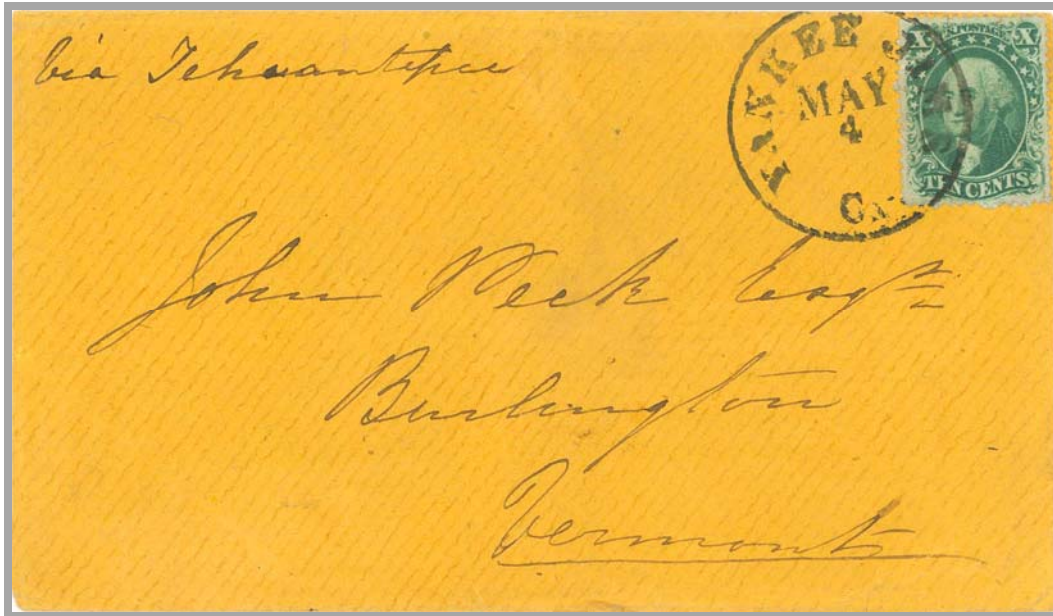 via Tehuantepec
YANKEE JIMS
MAY
4
CAL.
X U.S. POSTAGE X
TEN CENTS
John Peck Esqre
Burlington
Vermont